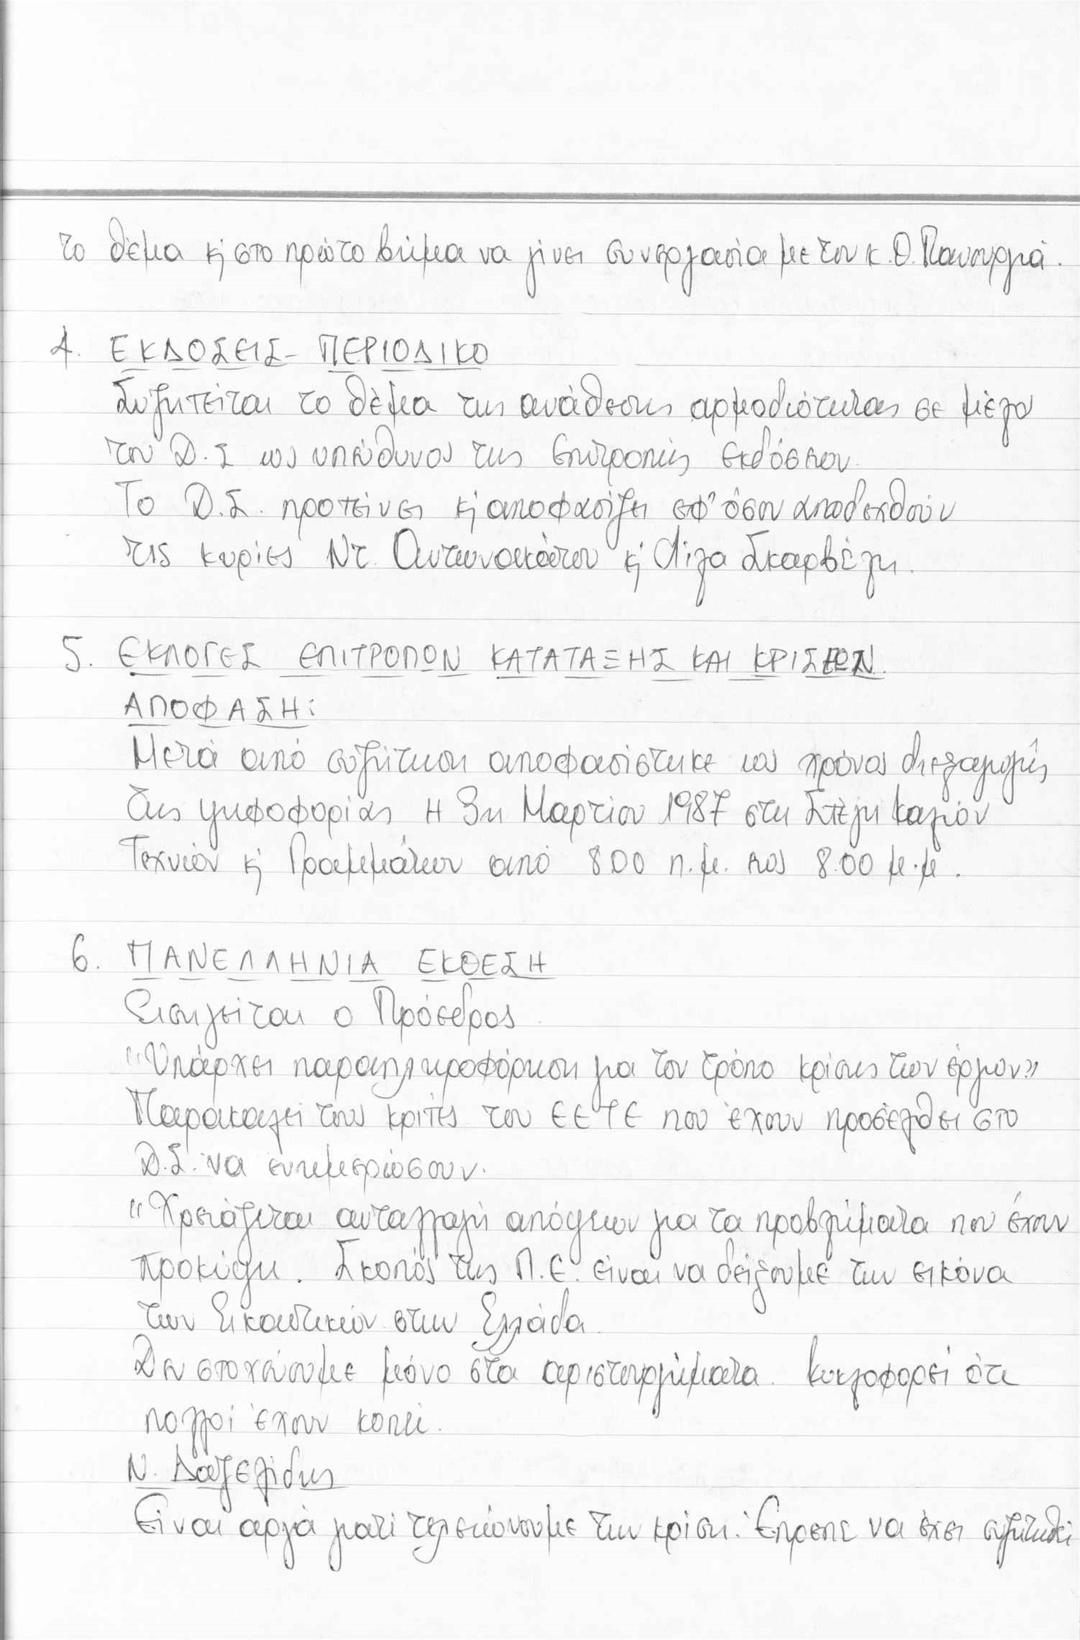 το θέμα κ' στο πρώτο βήμα να γίνει συνεργασία με τον κ. Θ. Πανουργιά.
4. ΕΚΔΟΣΕΙΣ - ΠΕΡΙΟΔΙΚΟ
Συζητείται το θέμα της ανάθεσης αρμοδιότητας σε μέλος
του Δ.Σ ως υπεύθυνος της Επιτροπής εκδόσεων.
Το Δ.Σ. προτείνει κ' αποφασίζει εφ' όσον αποδεχθούν
τις κυρίες Ντ. κ' Λίζα Σκαρβέλη.
5. ΕΚΛΟΓΕΣ ΕΠΙΤΡΟΠΩΝ ΚΑΤΑΤΑΞΗΣ ΚΑΙ ΚΡΙΣΕΩΝ
ΑΠΟΦΑΣΗ:
Μετά από συζήτηση αποφασίστηκε ως χρόνος διεξαγωγής
της ψηφοφορίας Η 3η Μαρτίου 1987 στη Στέγη Καλών
Τεχνών κ' Γραμμάτων από 8.00 π.μ. έως 8.00 μ.μ.
6. ΠΑΝΕΛΛΗΝΙΑ ΕΚΘΕΣΗ
Εισηγείται ο Πρόεδρος
"Υπάρχει παραπληροφόρηση για τον τρόπο κρίσης των έργων"
Παρακαλεί τους κριτές του ΕΕΤΕ που έχουν προσέλθει στο
Δ.Σ. να ενημερώσουν.
"Χρειάζεται ανταλλαγή απόψεων για τα προβλήματα που έχουν
προκύψη. Σκοπός της Π.Ε. είναι να δείξουμε την εικόνα
των Εικαστικών στην Ελλάδα.
Δεν στοχεύουμε μόνο στα αριστουργήματα. Κυκλοφορεί ότι
πολλοί έχουν κοπεί.
Ν. Δασκαλίδης
Είναι αργά γιατί τελειώνουμε την κρίση. Έπρεπε να έχει συζητηθεί